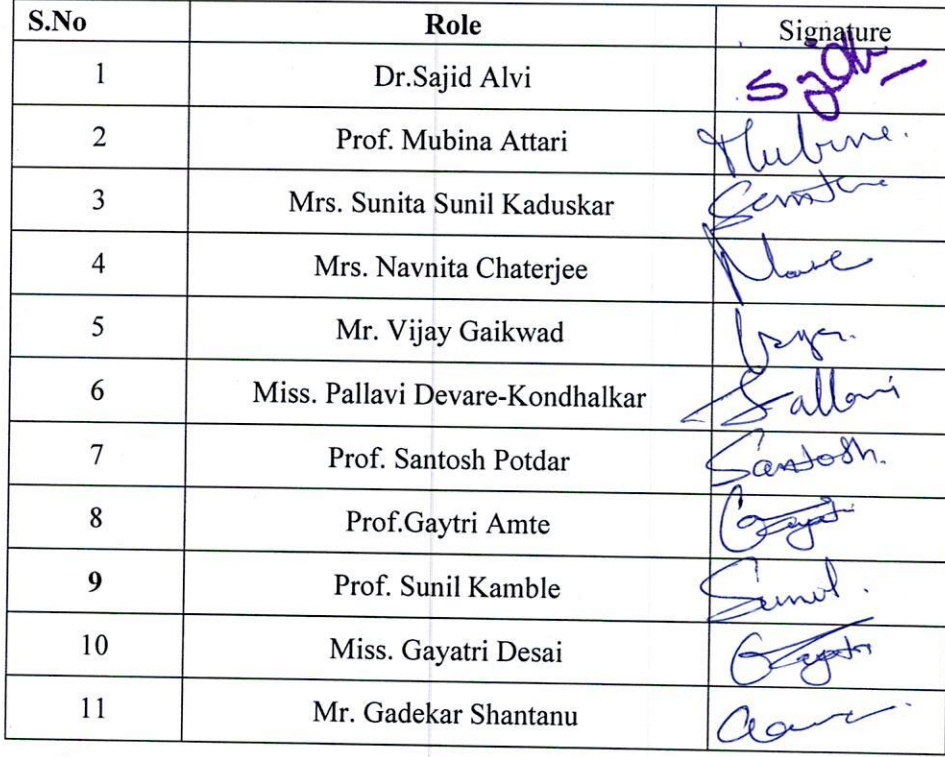 S.No Role Signature
1 Dr.Sajid Alvi
2 Prof. Mubina Attari Mubine.
3 Mrs. Sunita Sunil Kaduskar
4 Mrs. Navnita Chaterjee
5 Mr. Vijay Gaikwad
6 Miss. Pallavi Devare-Kondhalkar Pallavi
7 Prof. Santosh Potdar Santosh.
8 Prof.Gaytri Amte Gayatri
9 Prof. Sunil Kamble Sunil.
10 Miss. Gayatri Desai Gayatri
11 Mr. Gadekar Shantanu